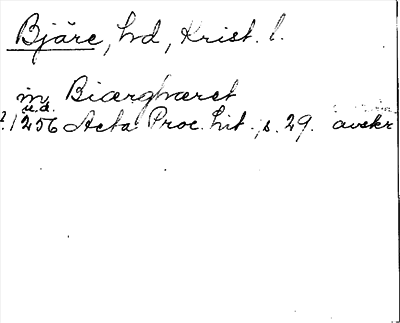 Bjäre, hd, Krist. l.
in Biærghæret
u.d.
1256 Acta Proc. Lit. s. 29. avskr